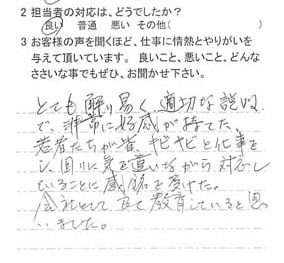 2 担当者の対応は、どうでしたか？
良い 普通 悪い その他(
3 お客様の声を聞くほど、仕事に情熱とやりがいを
与えて頂いています。 良いこと、悪いこと、どんな
ささいな事でもぜひ、お聞かせ下さい。
とても解り易く適切な説明
で、非常に好感が持てた、
若者たちが皆、キビキビと仕事を
し、周りに気を遣いながら対応し
ていることに感銘を受けた。
会社として良く教育していると思
いました。